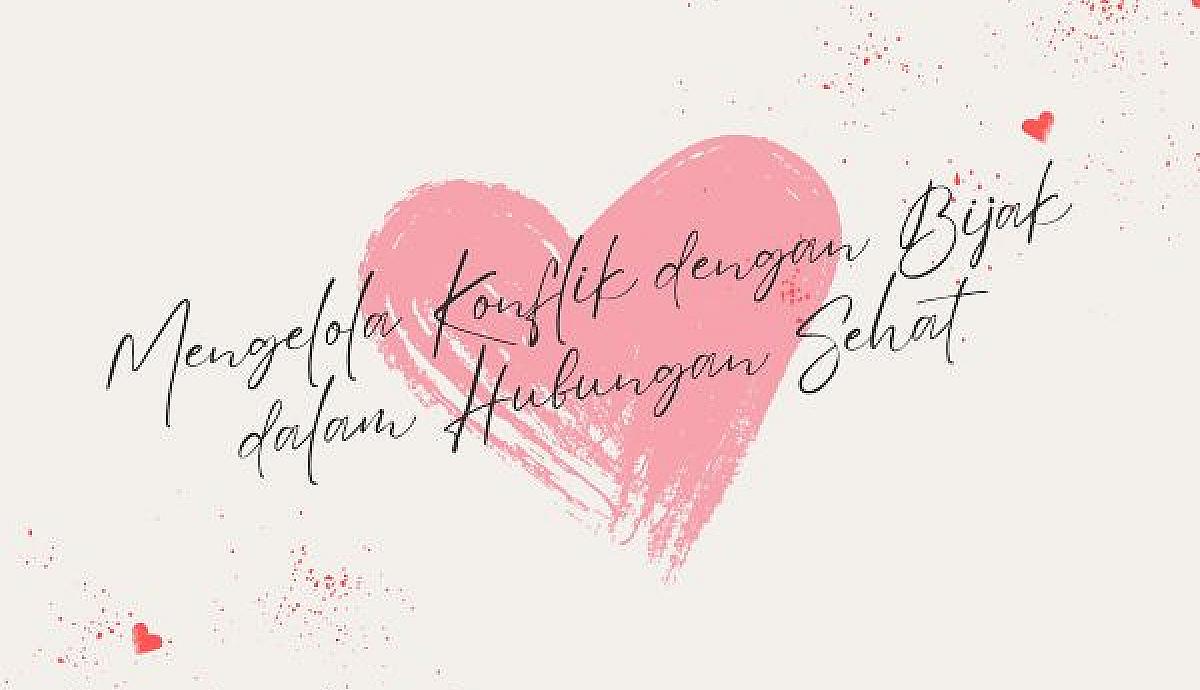 Mengelola Konflik dengan Bijak
dalam Hubungan Sehat.